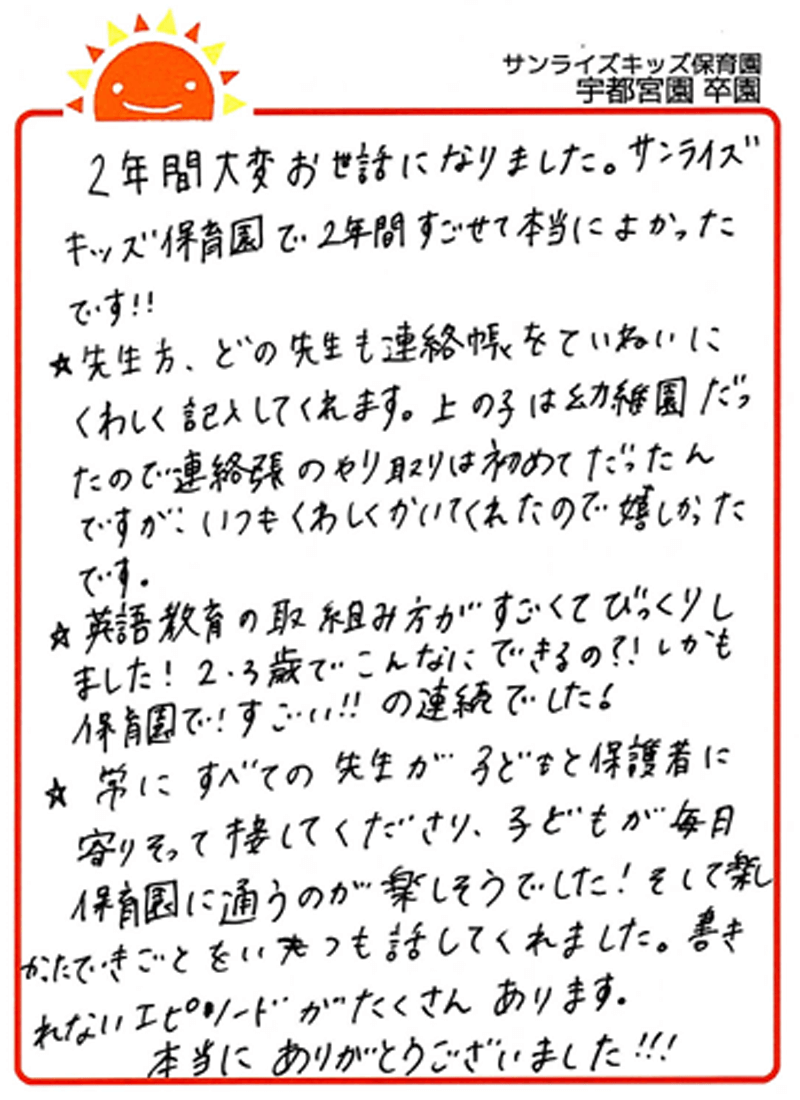 サンライズキッズ保育園
宇都宮園 卒園
2年間大変お世話になりました。サンライズ
キッズ保育園で2年間すごせて本当によかった
です!!
☆先生方、どの先生も連絡帳をていねいに
くわしく記入してくれます。上の子は幼稚園だっ
たので連絡張のやり取りは初めてだったん
ですが、いつもくわしくかいてくれたので嬉しかった
です。
☆英語教育の取組み方がすごくてびっくりし
ました!2.3歳でこんなにできるの?!しかも
保育園で!すごーい!!の連続でした。
☆ 常にすべての先生が子どもと保護者に
寄りそって接してくださり、子どもが毎日
保育園に通うのが楽しそうでした!そして楽し
かったできごとをいつも話してくれました。書き
れないエピソードがたくさんあります。
本当にありがとうございました!!!